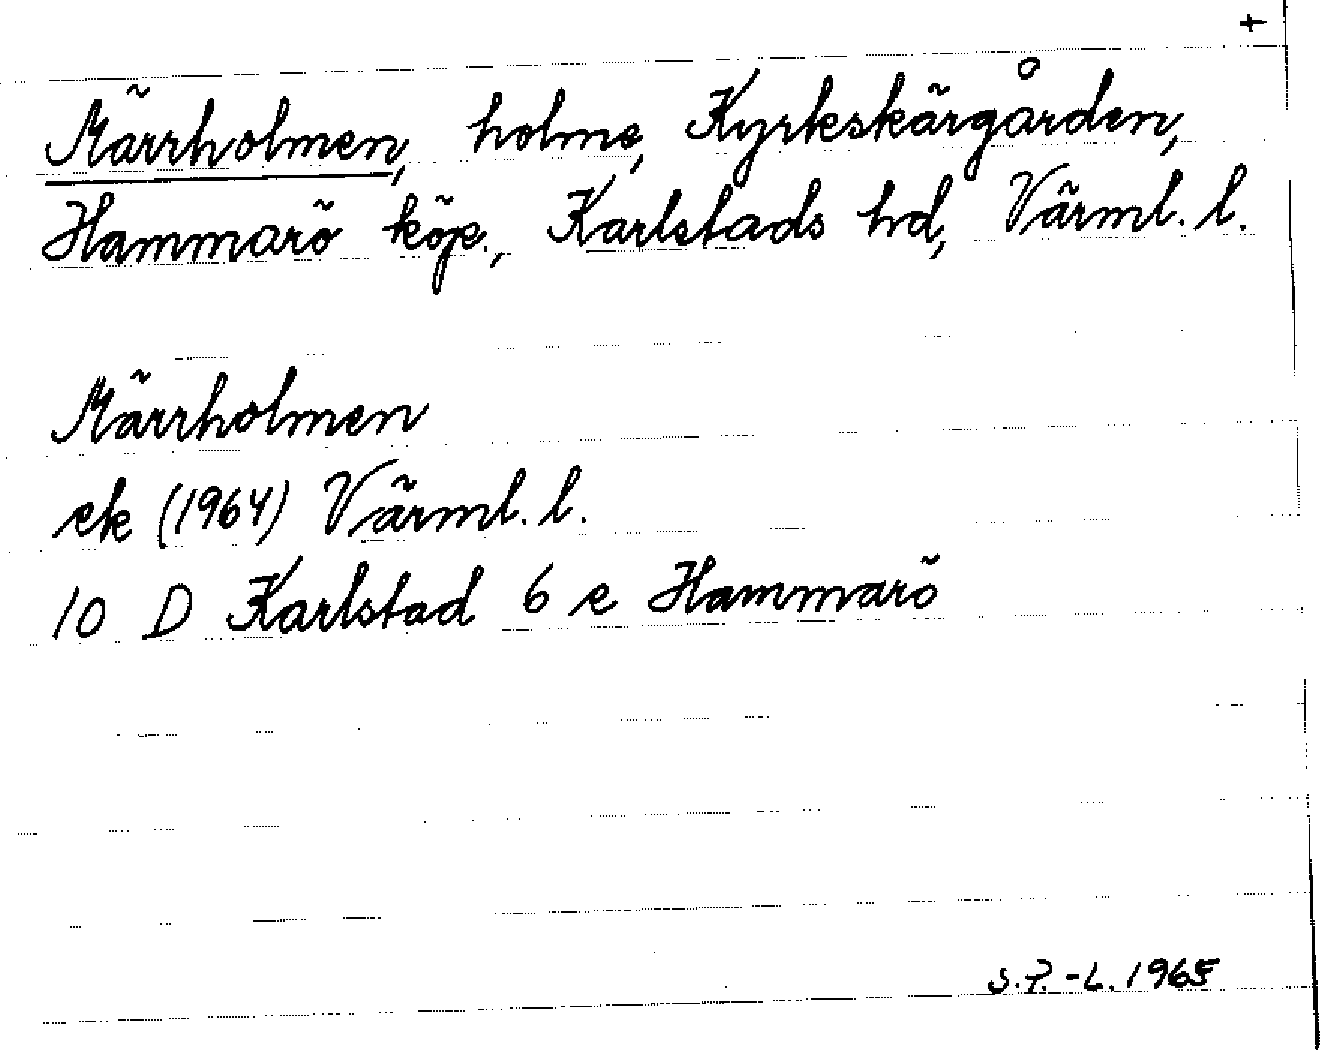 +
Märrholmen, holme, Kyrkskärgården,
Hammarö köp., Karlstads hd, Värml. l.
Märrholmen
ek (1964) Värml. l.
10 D Karlstad 6 e Hammarö
S.P.-L. 1965